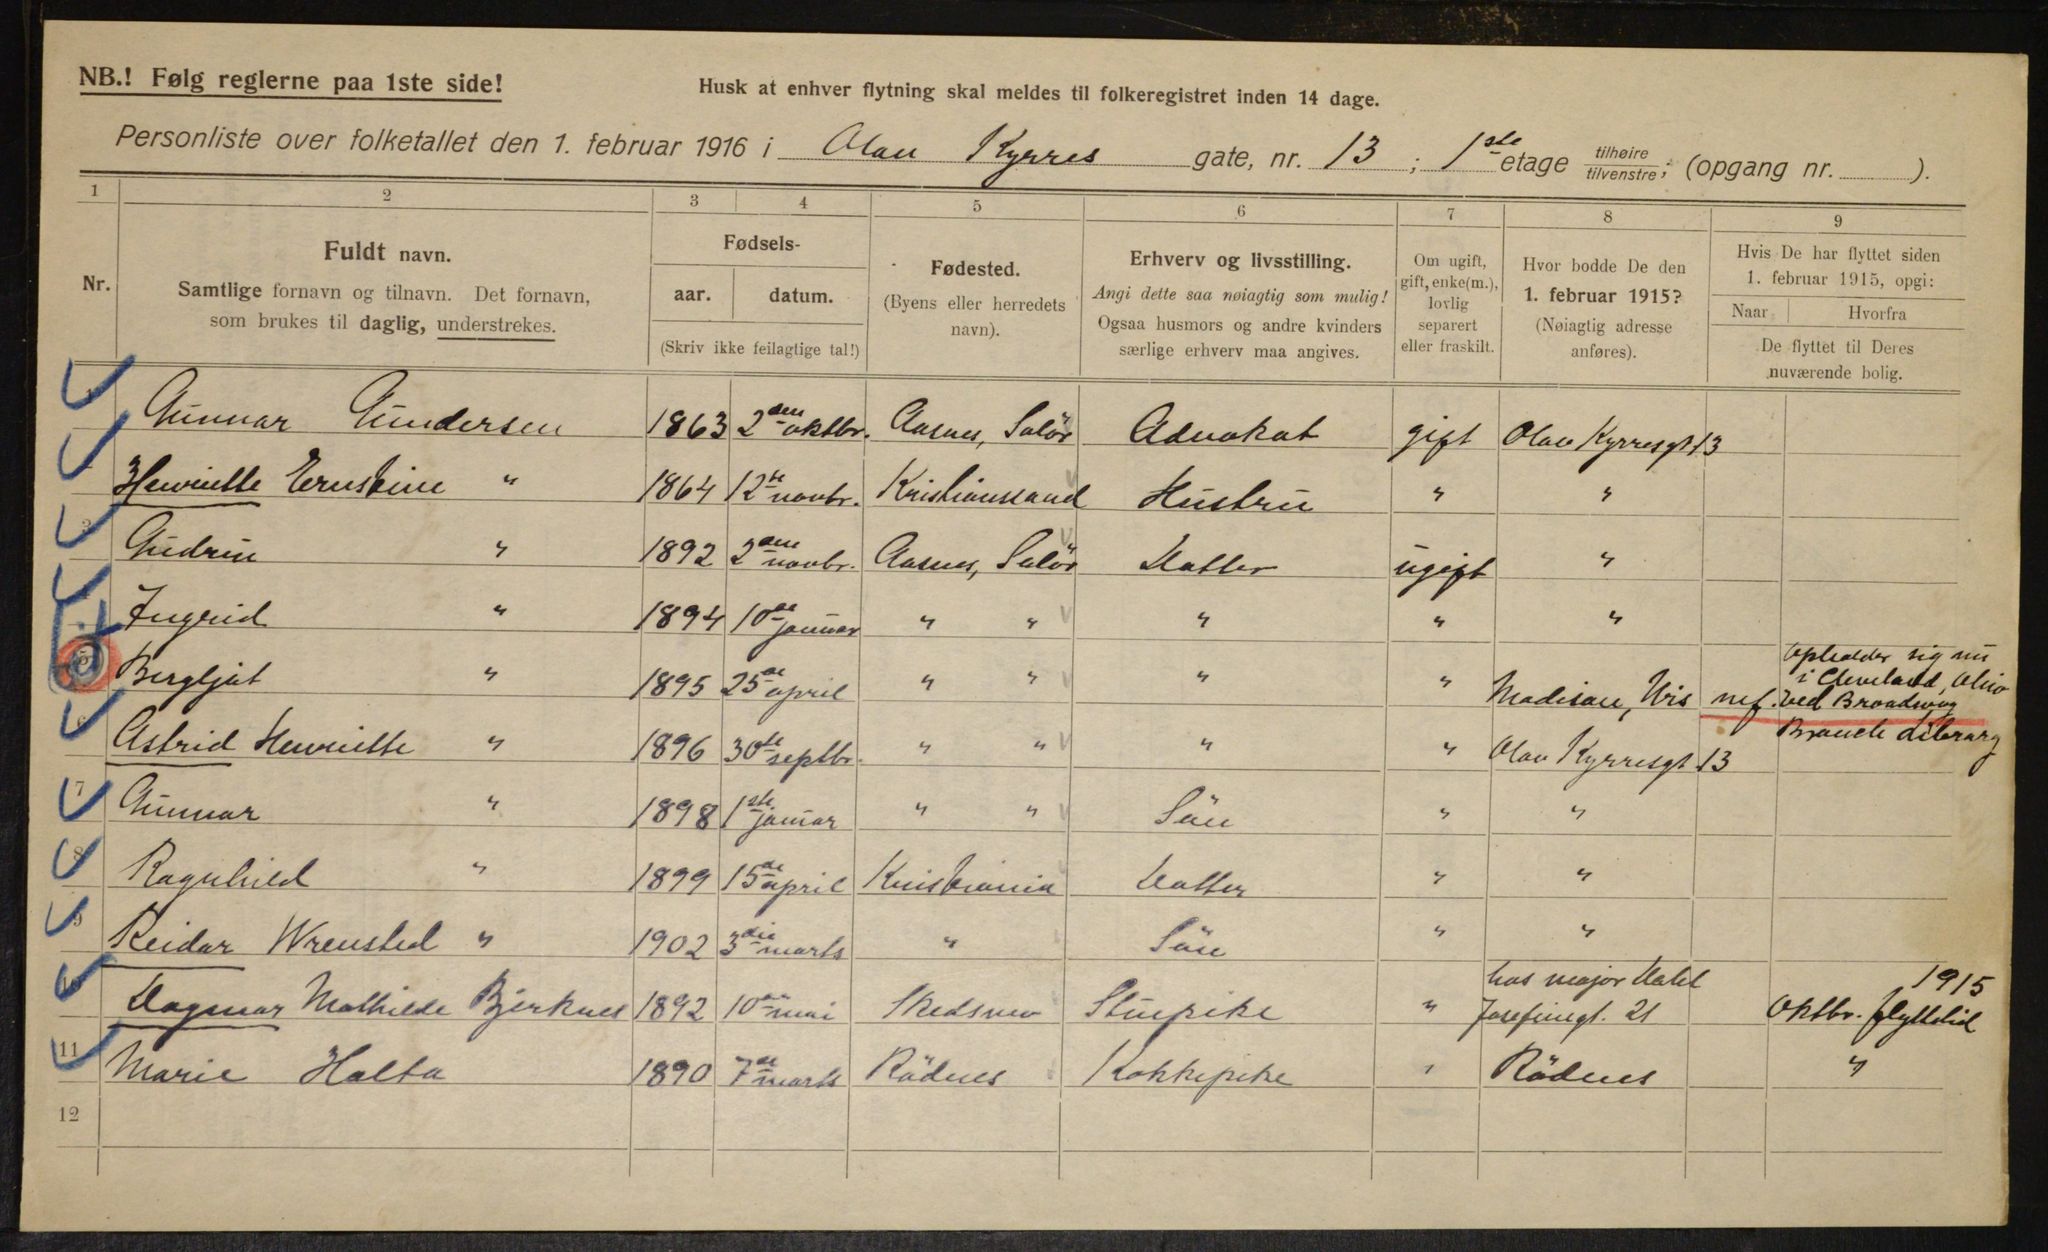 NB.! Følg reglerne paa 1ste side!
Husk at enhver flytning skal meldes til folkeregistret inden 14 dage.
Personliste over folketallet den 1. februar 1916 i Olav Kyrres gate, nr. 13 ; 1ste etage tilhøire/tilvenstre; (opgang nr. ).
1 2 3 4 5 6 7 8 9
Nr.
Fuldt navn.
Samtlige fornavn og tilnavn. Det fornavn,
som brukes til daglig, understrekes.
Fødsels-
aar. datum.
(Skriv ikke feilagtige tal!)
Fødested.
(Byens eller herredets
navn).
Erhverv og livsstilling.
Angi dette saa nøiagtig som mulig!
Ogsaa husmors og andre kvinders
særlige erhverv maa angives.
Om ugift,
gift, enke(m.),
lovlig
separert
eller fraskilt.
Hvor bodde De den
1. februar 1915?
(Nøiagtig adresse
anføres).
Hvis De har flyttet siden
1. februar 1915, opgi:
Naar Hvorfra
De flyttet til Deres
nuværende bolig.
Gunnar Gundersen 1863 2den oktbr. Aasnes, Solör Advokat gift Olav Kyrresgt 13
Henriette Ernstine " 1864 12te novbr. Kristianssand Hustru " "
3 Gudrun " 1892 2den novbr. Aasnes, Solör Datter ugift "
Ingrid " 1894 10de januar " " " " "
5 Bergljot " 1895 25de april " " " " Madison, Wis nef. Opholder sig nu
i Cleveland, Ohio
ved Broadway
Branch Library
6 Astrid Henriette " 1896 30te septbr. " " " " Olav Kyrresgt 13
7 Gunnar " 1898 1ste januar " " Sön " "
8 Ragnhild " 1899 15de april Kristiania Datter " "
9 Reidar Wrensted " 1902 3die marts " Sön " "
10 Dagmar Mathilde Bjerknes 1892 10de mai Skedsmo Stuepike " hos major Dahl
Josefinegt. 21 1915
Oktbr. flyttetid
11 Marie Holta 1890 7de marts Rödnes Kokkepike " Rödnes "
12